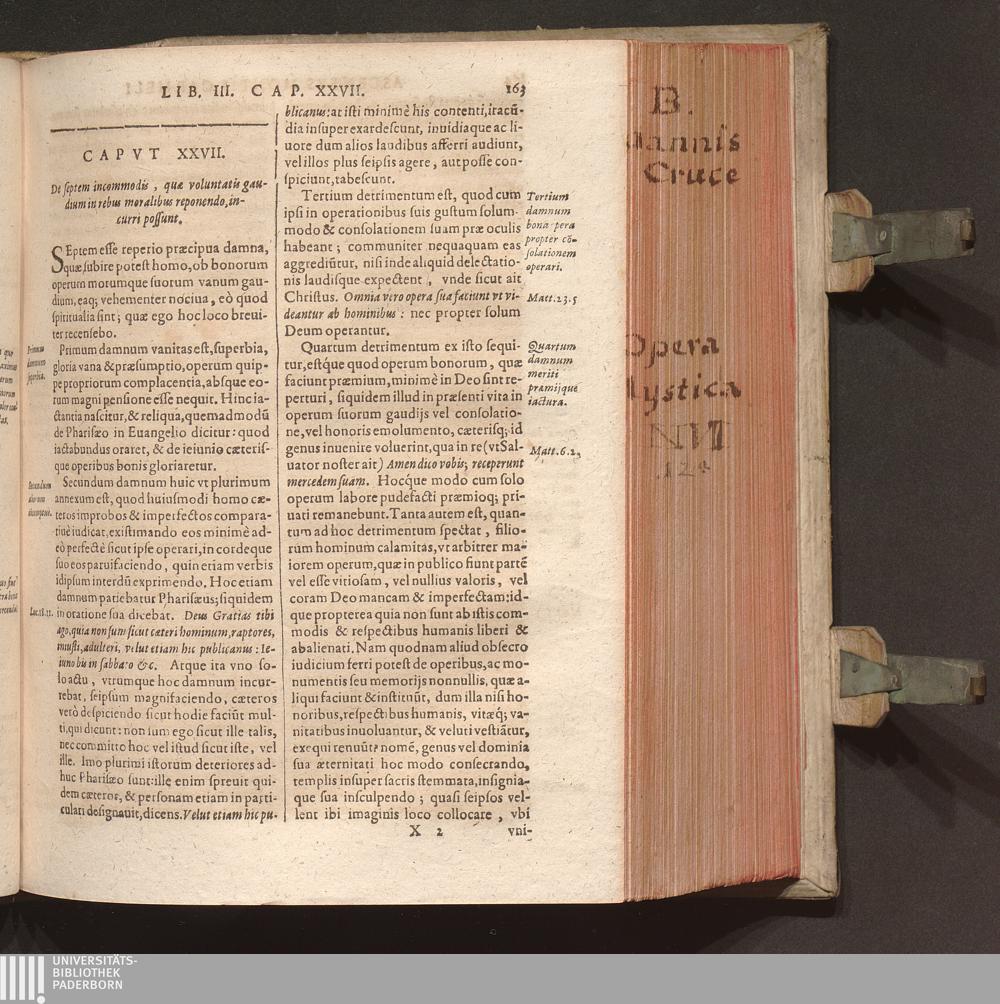 LIB. III. CAP. XXVII. 163
CAPVT XXVII.
De septem incommodis, quæ voluntatis gau-
dium in rebus moralibus reponendo, in-
curri possunt.
SEptem esse reperio præcipua damna,
quæ subire potest homo, ob bonorum
operum morumque suorum vanum gau-
dium, eaq; vehementer nociua, eò quod
spiritualia sint; quæ ego hoc loco breui-
ter recensebo.
Primum damnum vanitas est, superbia,
gloria vana & præsumptio, operum quip-
pe propriorum complacentia, absque eo-
rum magni pensione esse nequit. Hinc ia-
ctantia nascitur, & reliqua, quemadmodũ
de Pharisæo in Euangelio dicitur: quod
iactabundus oraret, & de ieiunio cæteris-
que operibus bonis gloriaretur.
Secundum damnum huic vt plurimum
annexum est, quod huiusmodi homo cæ-
teros improbos & imperfectos compara-
tiuè iudicat, existimando eos minimè ad-
eò perfectè sicut ipse operari, in cordeque
suo eos paruifaciendo, quin etiam verbis
idipsum interdũ exprimendo. Hoc etiam
damnum patiebatur Pharisæus; siquidem
in oratione sua dicebat. Deus Gratias tibi
ago, quia non sum sicut cæteri hominum, raptores,
iniusti, adulteri, velut etiam hic publicanus: Ie-
iuno bis in sabbato &c. Atque ita vno so-
lo actu, vtrumque hoc damnum incur-
rebat, seipsum magnifaciendo, cæteros
verò despiciendo sicut hodie faciũt mul-
ti, qui dicunt: non sum ego sicut ille talis,
nec committo hoc vel istud sicut iste, vel
ille. Imo plurimi istorum deteriores ad-
huc Pharisæo sunt: ille enim spreuit qui-
dem cæteros, & personam etiam in parti-
culari designauit, dicens. Velut etiam hic pu-
Primum
damnum
superbia.
Secundum
Luc. 18. 11.
blicanus: at isti minimè his contenti, iracũ-
dia insuper exardescunt, inuidiaque ac li-
uore dum alios laudibus afferri audiunt,
vel illos plus seipsis agere, aut posse con-
spiciunt, tabescunt.
Tertium detrimentum est, quod cum
ipsi in operationibus suis gustum solum-
modo & consolationem suam præ oculis
habeant; communiter nequaquam eas
aggrediũtur, nisi inde aliquid delectatio-
nis laudisque expectent, vnde sicut ait
Christus. Omnia vero opera sua faciunt vt vi-
deantur ab hominibus: nec propter solum
Deum operantur.
Quartum detrimentum ex isto sequi-
tur, estq́ue quod operum bonorum, quæ
faciunt præmium, minimè in Deo sint re-
perturi, siquidem illud in præsenti vita in
operum suorum gaudijs vel consolatio-
ne, vel honoris emolumento, cæterisq; id
genus inuenire voluerint, qua in re (vt Sal-
uator noster ait) Amen dico vobis, receperunt
mercedem suam. Hocq́ue modo cum solo
operum labore pudefacti præmioq; pri-
uati remanebunt. Tanta autem est, quan-
tum ad hoc detrimentum spectat, filio-
rum hominum calamitas, vt arbitrer ma-
iorem operum, quæ in publico fiunt partẽ
vel esse vitiosam, vel nullius valoris, vel
coram Deo mancam & imperfectam: id-
que propterea quia non sunt ab istis com-
modis & respectibus humanis liberi &
abalienati. Nam quodnam aliud obsecro
iudicium ferri potest de operibus, ac mo-
numentis seu memorijs nonnullis, quæ a-
liqui faciunt & instituũt, dum illa nisi ho-
noribus, respectibus humanis, vitæq́; va-
nitatibus inuoluantur, & veluti vestiãtur,
exequi renuũt? nomẽ, genus vel dominia
sua æternitati hoc modo consecrando,
templis insuper sacris stemmata, insignia-
que sua insculpendo; quasi seipsos vel-
lent ibi imaginis loco collocare, vbi
X 2 vni-
Tertium
damnum
bona opera
propter cõ-
solationem
operari.
Matt. 23. 5
Quartum
damnum
meriti
præmijque
iactura.
Matt. 6. 2.
B.
oannis
Cruce
Opera
Mystica
UNIVERSITÄTS-
BIBLIOTHEK
PADERBORN